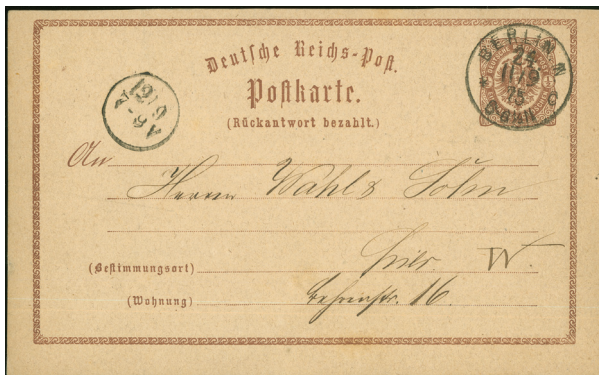 Deutsche Reichs-Post.
Postkarte.
(Rückantwort bezahlt.)
BERLIN N
24
11 9
75
An
Herrn Wahl & Sohn
hier. W.
(Bestimmungsort)
Behrenstr. 16.
(Wohnung)